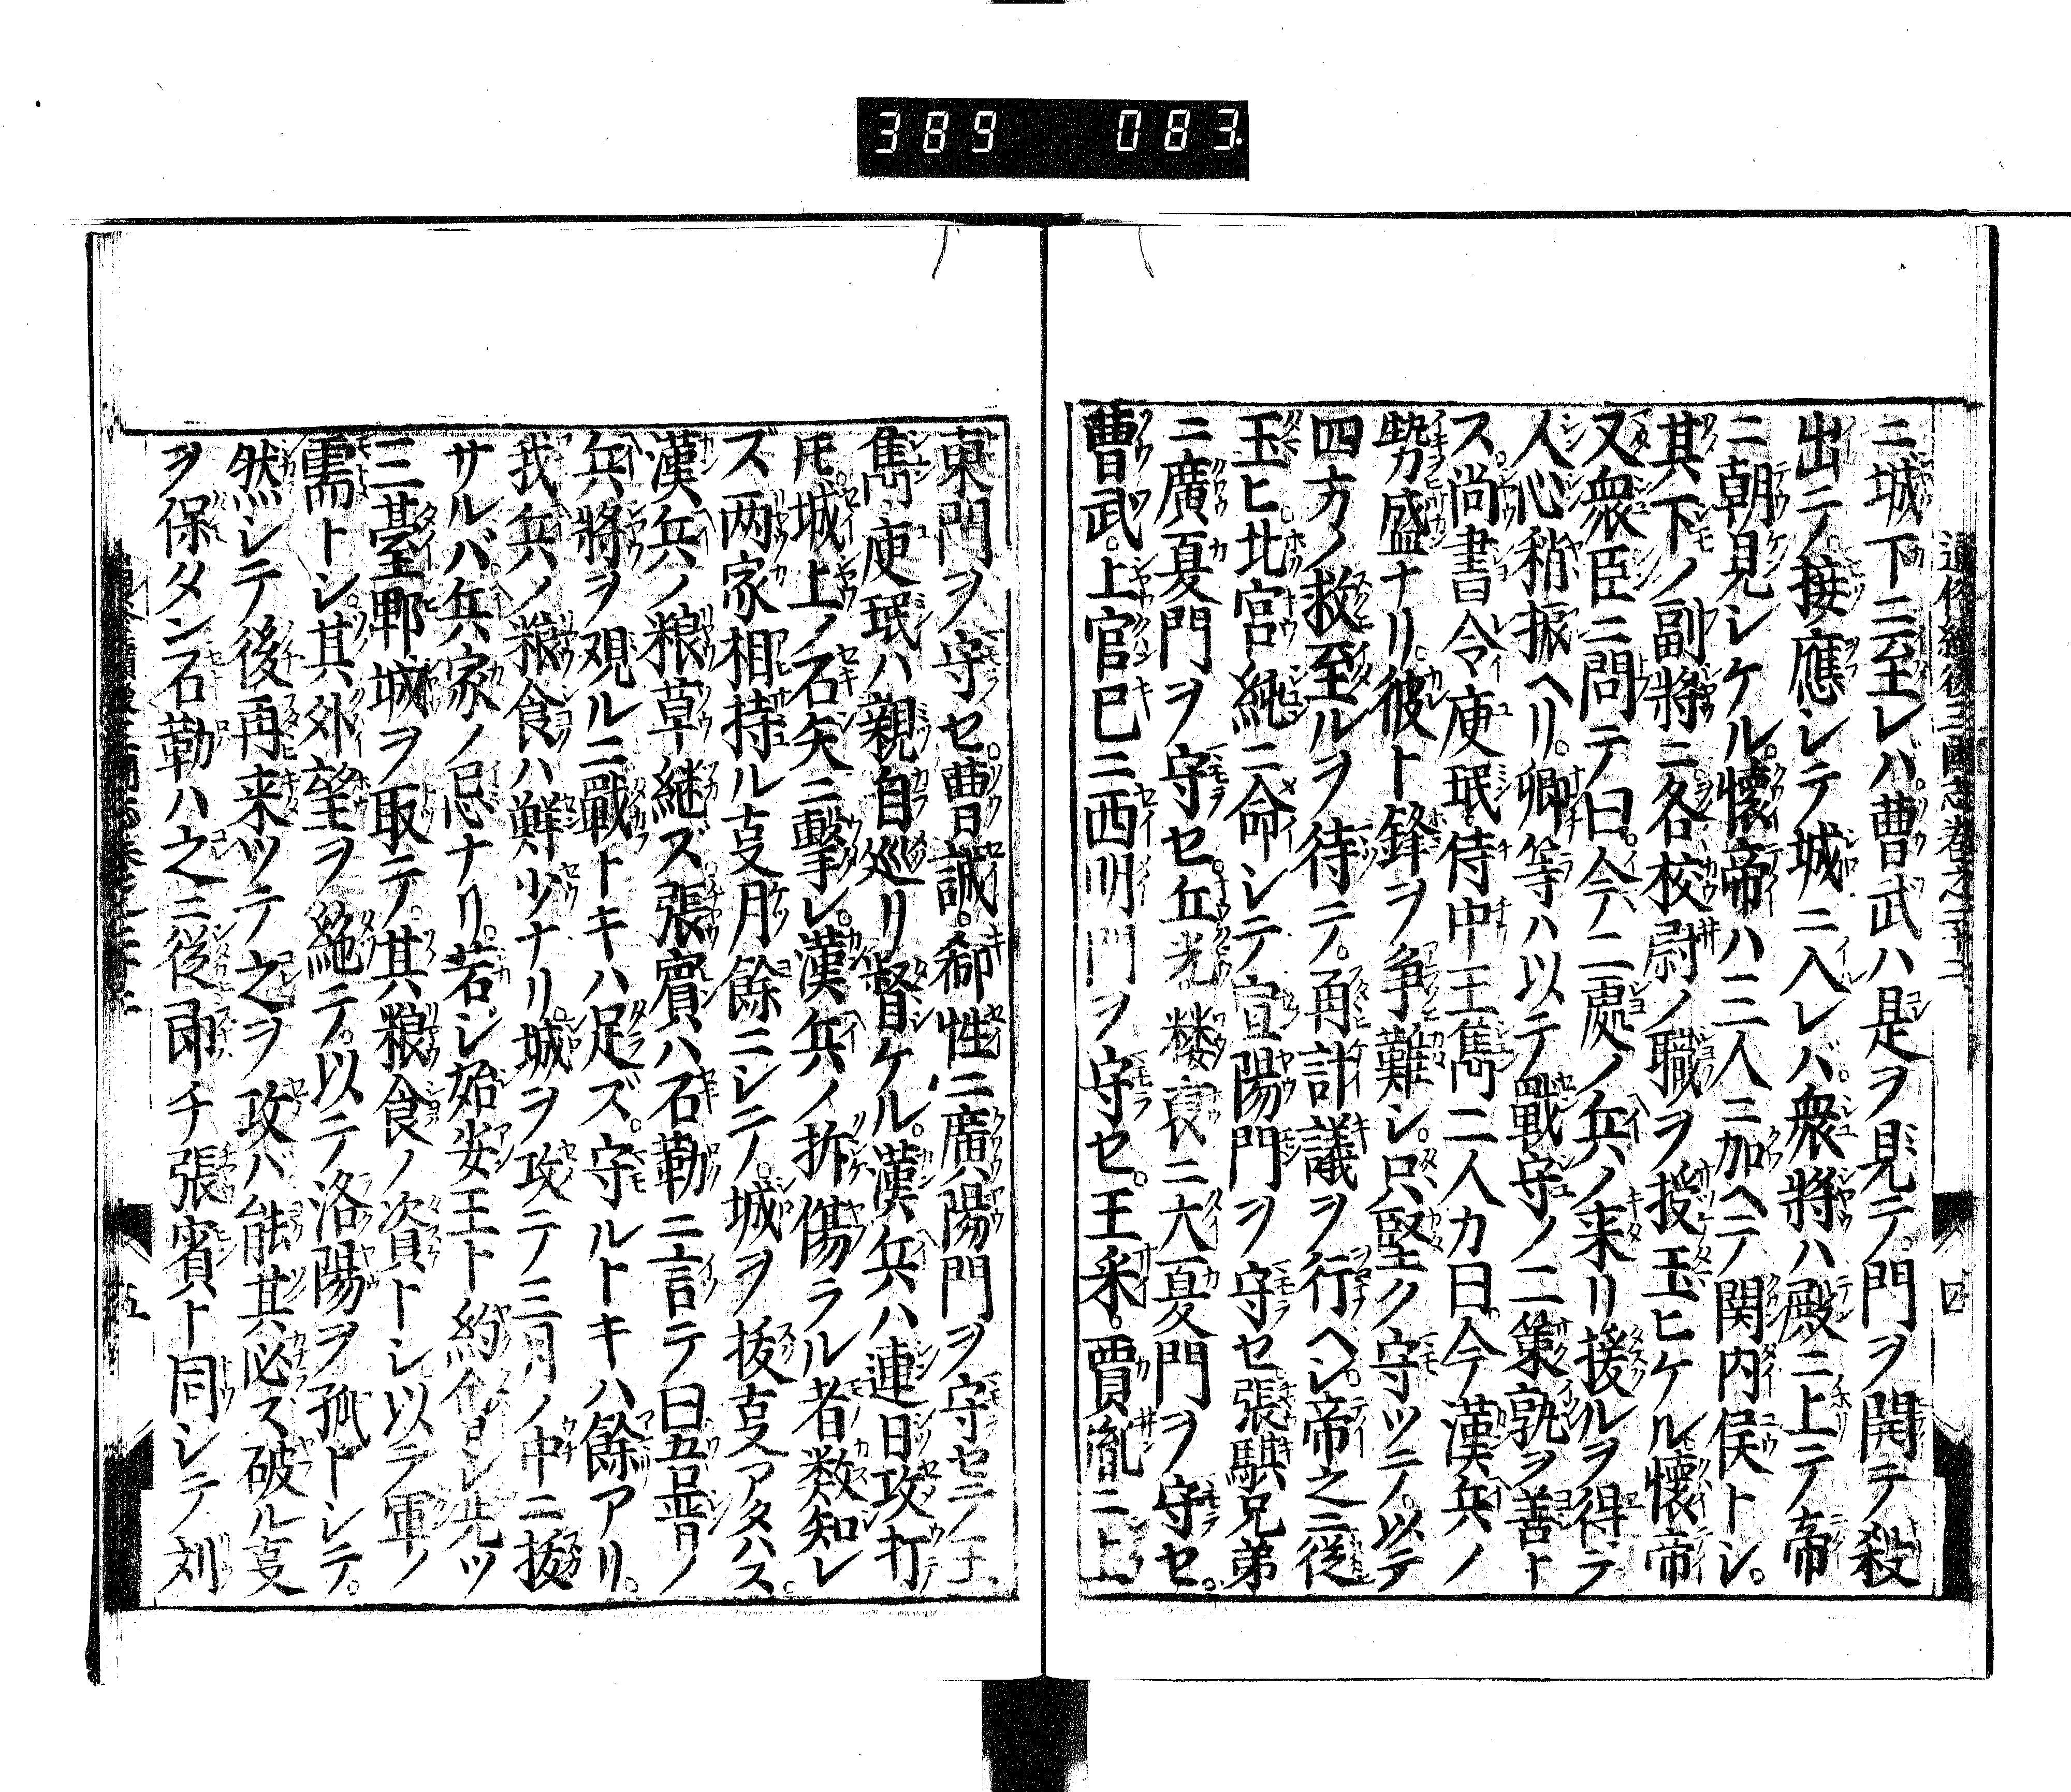 389 083
ニ城下ニ至レバ曹武ハ是ヲ見テ門ヲ開テ殺
出テ接應シテ城ニ入レバ衆將ハ殿ニ上テ帝
ニ朝見シケル懷帝ハ三人ニ加ヘテ関内侯トシ。
其下ノ副將ニ各校尉ノ職ヲ授玉ヒケル懷帝
又衆臣ニ問テ曰今二處ノ兵ノ来リ援ルヲ得テ
人心稍振ヘリ。卿等ハ以テ戰守ノ二策孰ヲ善ト
ス。尚書令庾珉侍中王雋二人カ曰今漢兵ノ
勢力盛ナリ彼ト鋒ヲ争難シ只堅ク守ツテ以テ
四方ノ救至ルヲ待テ。再計議ヲ行ヘシ。帝之ニ從
玉ヒ北宮純ニ命シテ宣陽門ヲ守セ張騏兄弟
ニ廣夏門ヲ守セ丘光楼裒ニ大夏門ヲ守セ。
曹武上官巳ニ西明門ヲ守セ。王釆。賈胤ニ上
東門ヲ守セ曹誠。郗性ニ廣陽門ヲ守セテ王
雋庾珉ハ親自巡リ督ケル。漢兵ハ連日攻打
𪜈城上ノ石矢ニ擊レ漢兵ノ拆傷ラル者数知レ
ズ两家相持ル𫝆月餘ニシテ。城ヲ拔𫝆アタハス。
漢兵ノ粮草継ズ張賓ハ石勒ニ言テ曰吾晋ノ
兵將ヲ观ルニ戰トキハ足ズ。守ルトキハ餘アリ。
我兵ノ粮食ハ鮮少ナリ城ヲ攻テ三月ノ中ニ拔
サルバ兵家ノ忌ナリ。若シ始安王ト約會シ先ツ
三臺鄲城ヲ取テ其粮食ノ資トシ以テ軍ノ
需トシ其外望ヲ絶テ以テ洛陽ヲ孤トシテ。
然シテ後再来ツテ之ヲ攻バ能其必ス破ル𫝆
ヲ保タン石勒ハ之ニ從即チ張賓ト同シテ刘